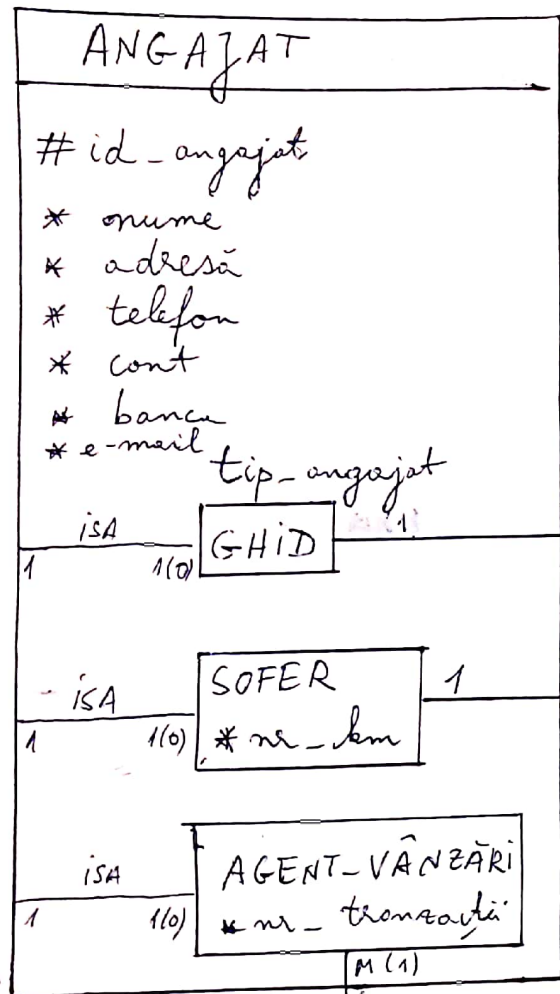 ANGAJAT
# id_angajat
* nume
* adresă
* telefon
* cont
* banca
* e-mail
tip_angajat
isA
GHiD
1
1(0)
(1)
isA
SOFER
1
1
1(0)
* nr_km
isA
AGENT_VÂNZĂRi
1
1(0)
* nr_tranzacții
M(1)